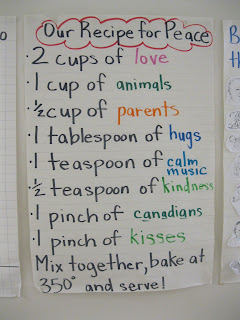 Our Recipe for Peace
· 2 cups of love
· 1 cup of animals
· ½ cup of parents
· 1 tablespoon of hugs
· 1 teaspoon of calm music
· ½ teaspoon of kindness
· 1 pinch of canadians
· 1 pinch of kisses
Mix together, bake at
350° and serve!